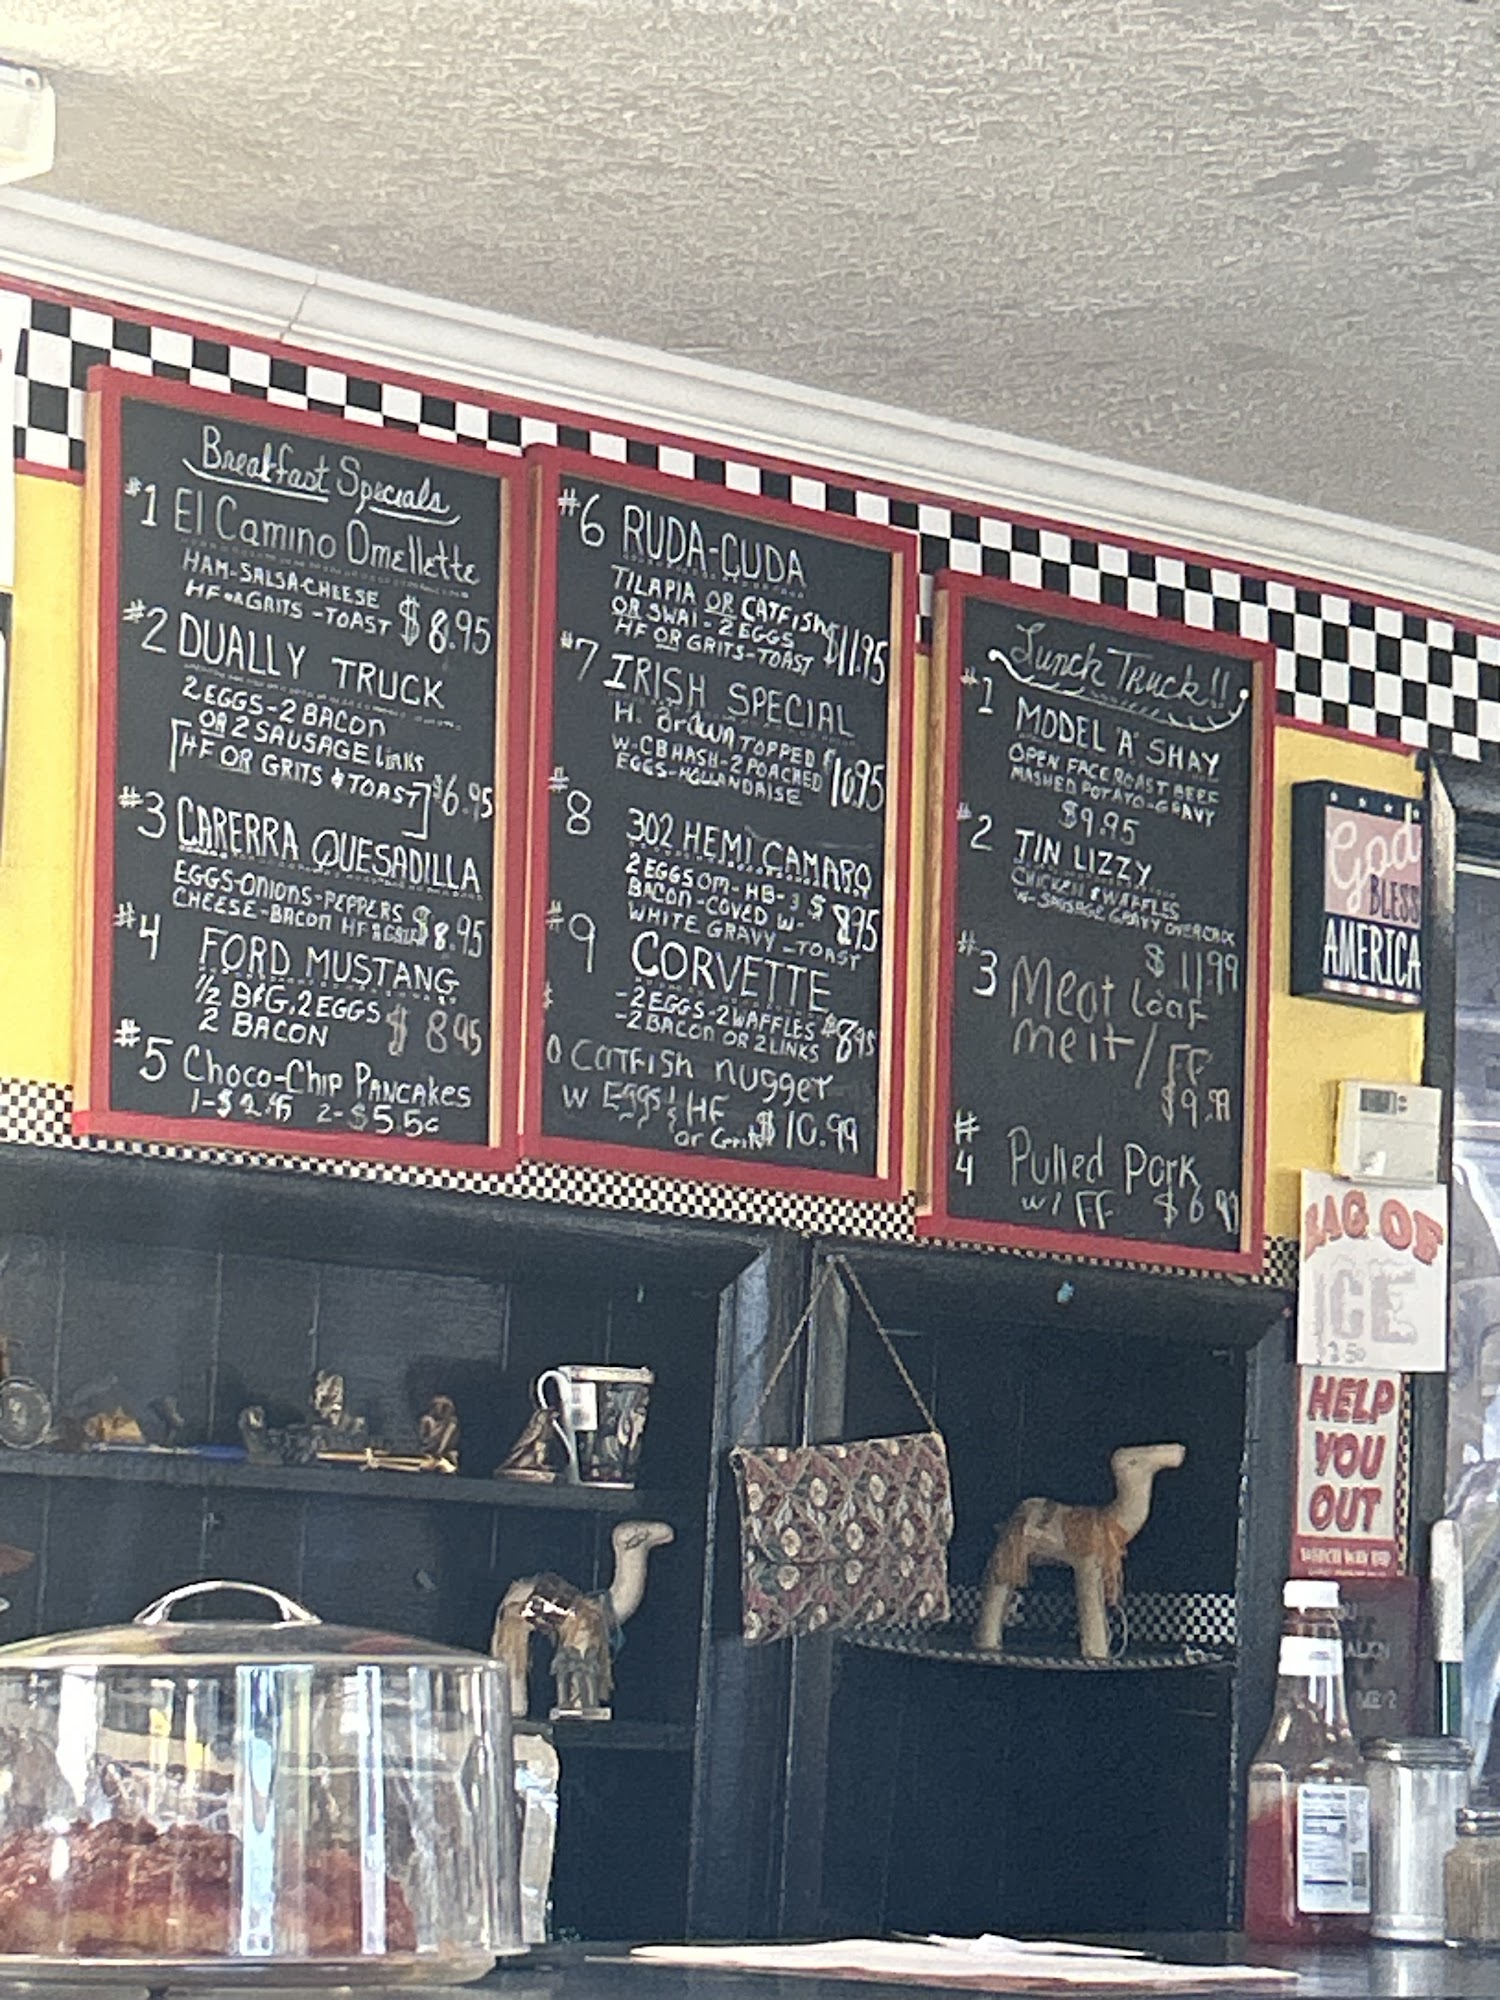 Breakfast Specials
#1 El Camino Omellette
HAM-SALSA-CHEESE
HF OR GRITS - TOAST $8.95
#2 DUALLY TRUCK
2 EGGS-2 BACON
OR 2 SAUSAGE links
[HF OR GRITS & TOAST] $6.95
#3 CARERRA QUESADILLA
EGGS-ONIONS-PEPPERS
CHEESE-BACON HF & $8.95
#4 FORD MUSTANG
1/2 B&G, 2 EGGS
2 BACON $8.95
#5 Choco-Chip PANCAKES
1-$2.95 2-$5.50
#6 RUDA-CUDA
TILAPIA OR CATFISH
OR SWAI - 2 EGGS
HF OR GRITS-TOAST $11.95
#7 IRISH SPECIAL
H. Brown TOPPED
W-CB HASH-2 POACHED
EGGS-HOLLANDAISE $10.95
#8 302 HEMI CAMARO
2 EGGS OM-HB-3
BACON-COVED W-
WHITE GRAVY -TOAST $8.95
#9 CORVETTE
-2 EGGS-2 WAFFLES
-2 BACON OR 2 LINKS $8.95
CATFISH nugger
W Eggs & HF
or Grits $10.99
Lunch Truck!!
#1 MODEL 'A' SHAY
OPEN FACE ROAST BEEF
MASHED POTATO-GRAVY
$9.95
#2 TIN LIZZY
CHICKEN & WAFFLES
W-SAUSAGE GRAVY OVER
$11.99
#3 Meat loaf
melt/FF
$9.99
#4 Pulled Pork
w/ FF $6.99
God
BLESS
AMERICA
BAG OF
ICE
HELP
YOU
OUT